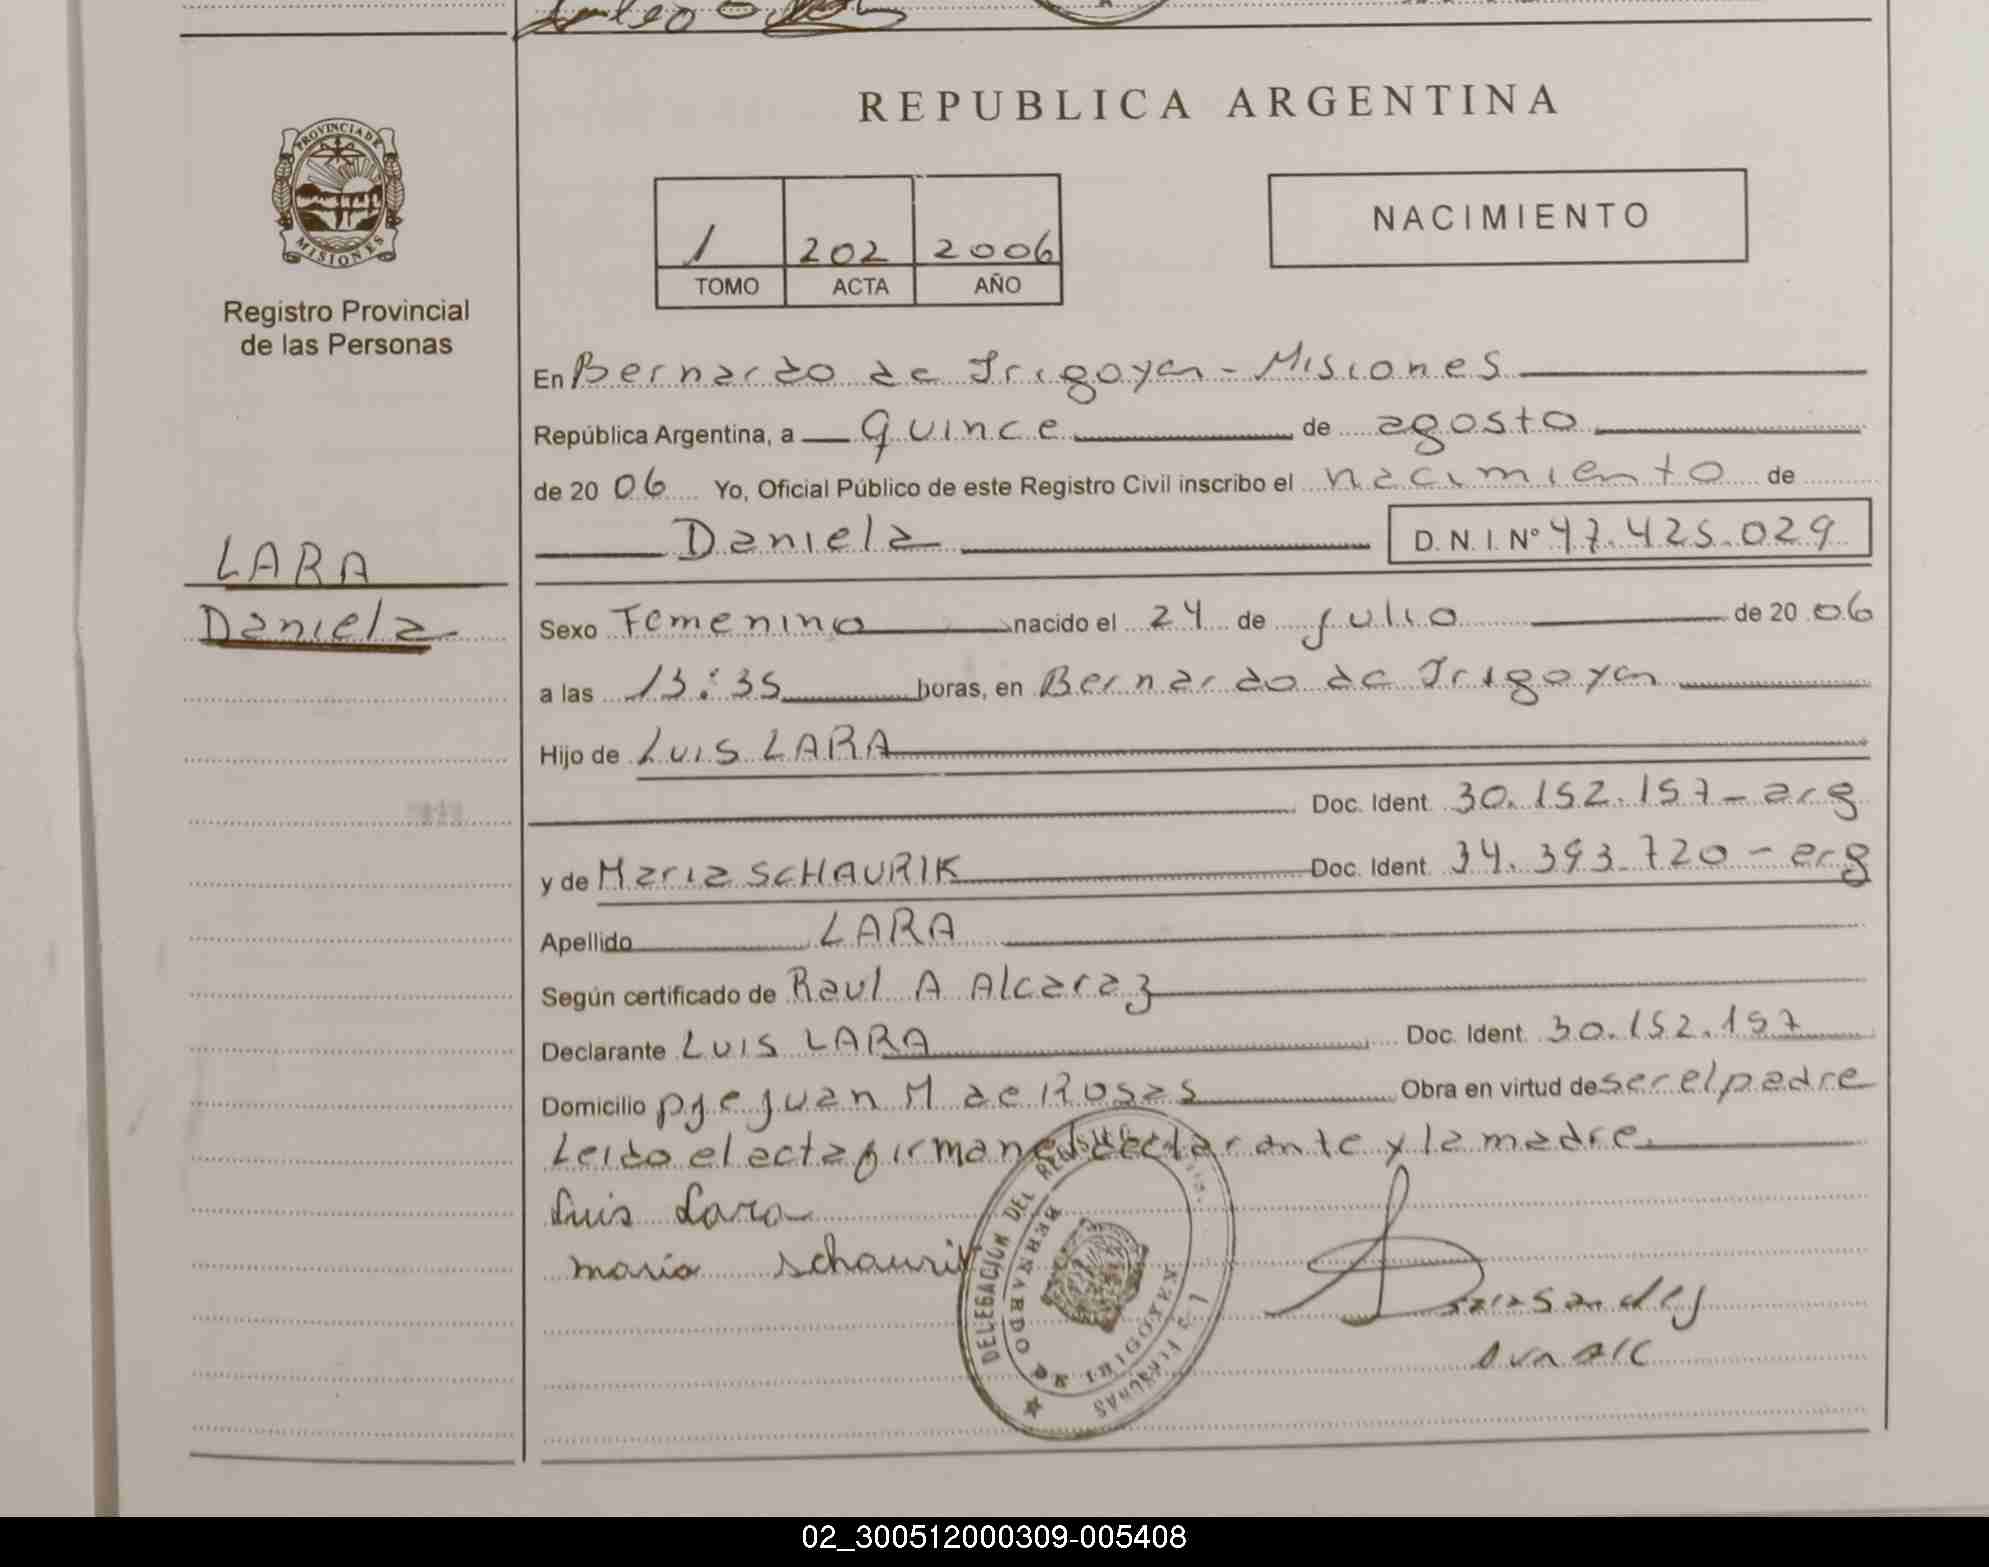 REPUBLICA ARGENTINA
PROVINCIA DE
MISIONES
Registro Provincial
de las Personas
LARA
Daniela
1 202 2006
TOMO ACTA AÑO
NACIMIENTO
En Bernardo de Irigoyen - Misiones
República Argentina, a quince de agosto
de 20 06 Yo, Oficial Público de este Registro Civil inscribo el nacimiento de
Daniela D.N.I. Nº 47.425.029
Sexo Femenino nacido el 24 de julio de 20 06
a las 13:35 horas, en Bernardo de Irigoyen
Hijo de Luis LARA
Doc. Ident. 30.152.157 - arg
y de Maria SCHAURIK Doc. Ident. 34.393.720 - arg
Apellido LARA
Según certificado de Raul A Alcaraz
Declarante LUIS LARA Doc. Ident. 30.152.157
Domicilio pje Juan M de Rosas Obra en virtud de ser el padre
Leido el acta firman el declarante y la madre.
Luis Lara
maria Schaurik
DELEGACION DEL
BERNARDO DE IRIGOYEN
PERSONAS
02_300512000309-005408